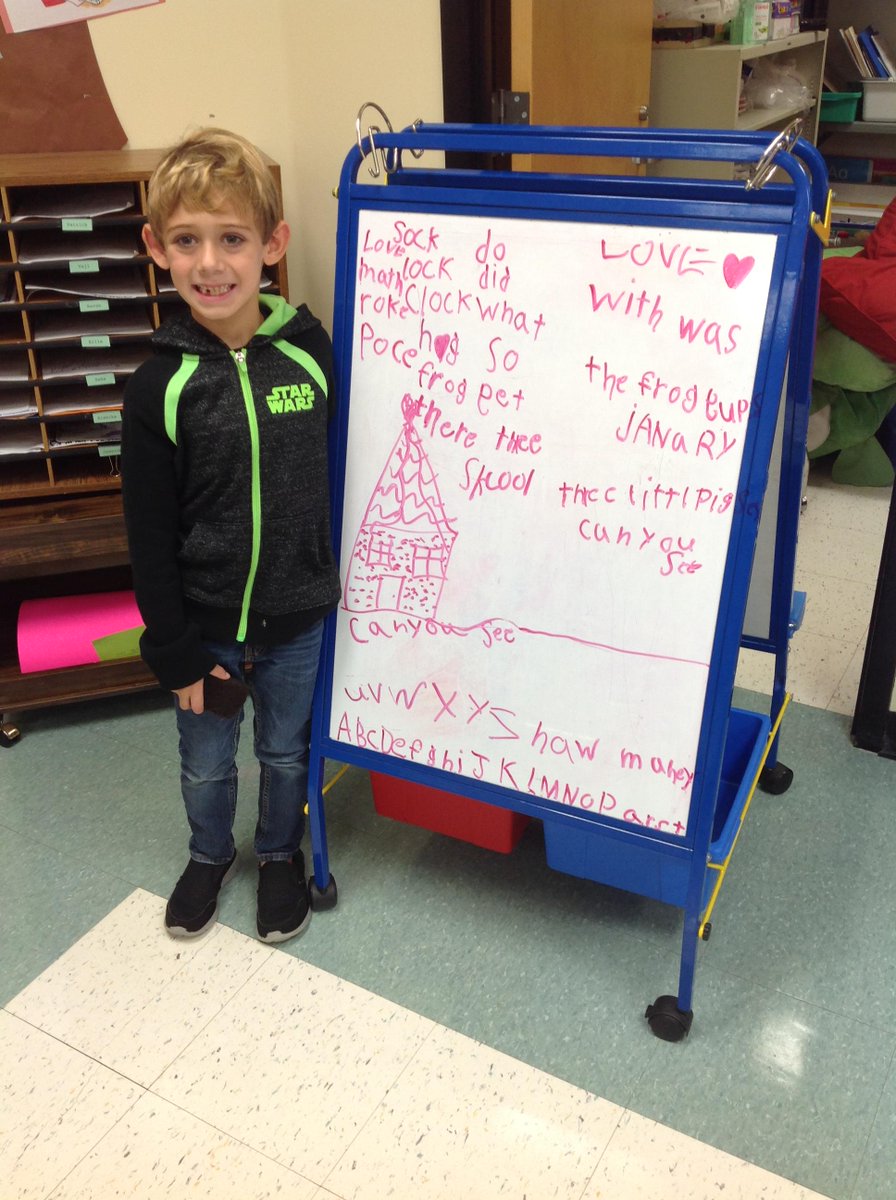 STAR
WARS
Sock
Love
lock
math
Clock
roke
hog
Poce
frog
do
did
what
so
pet
there thee
Skool
LOVE
with was
the frog
JANARY
thee littl Pigs
can you
see
can you see
uvwxyS haw maney
ABCDefghiJKLMNOP arct